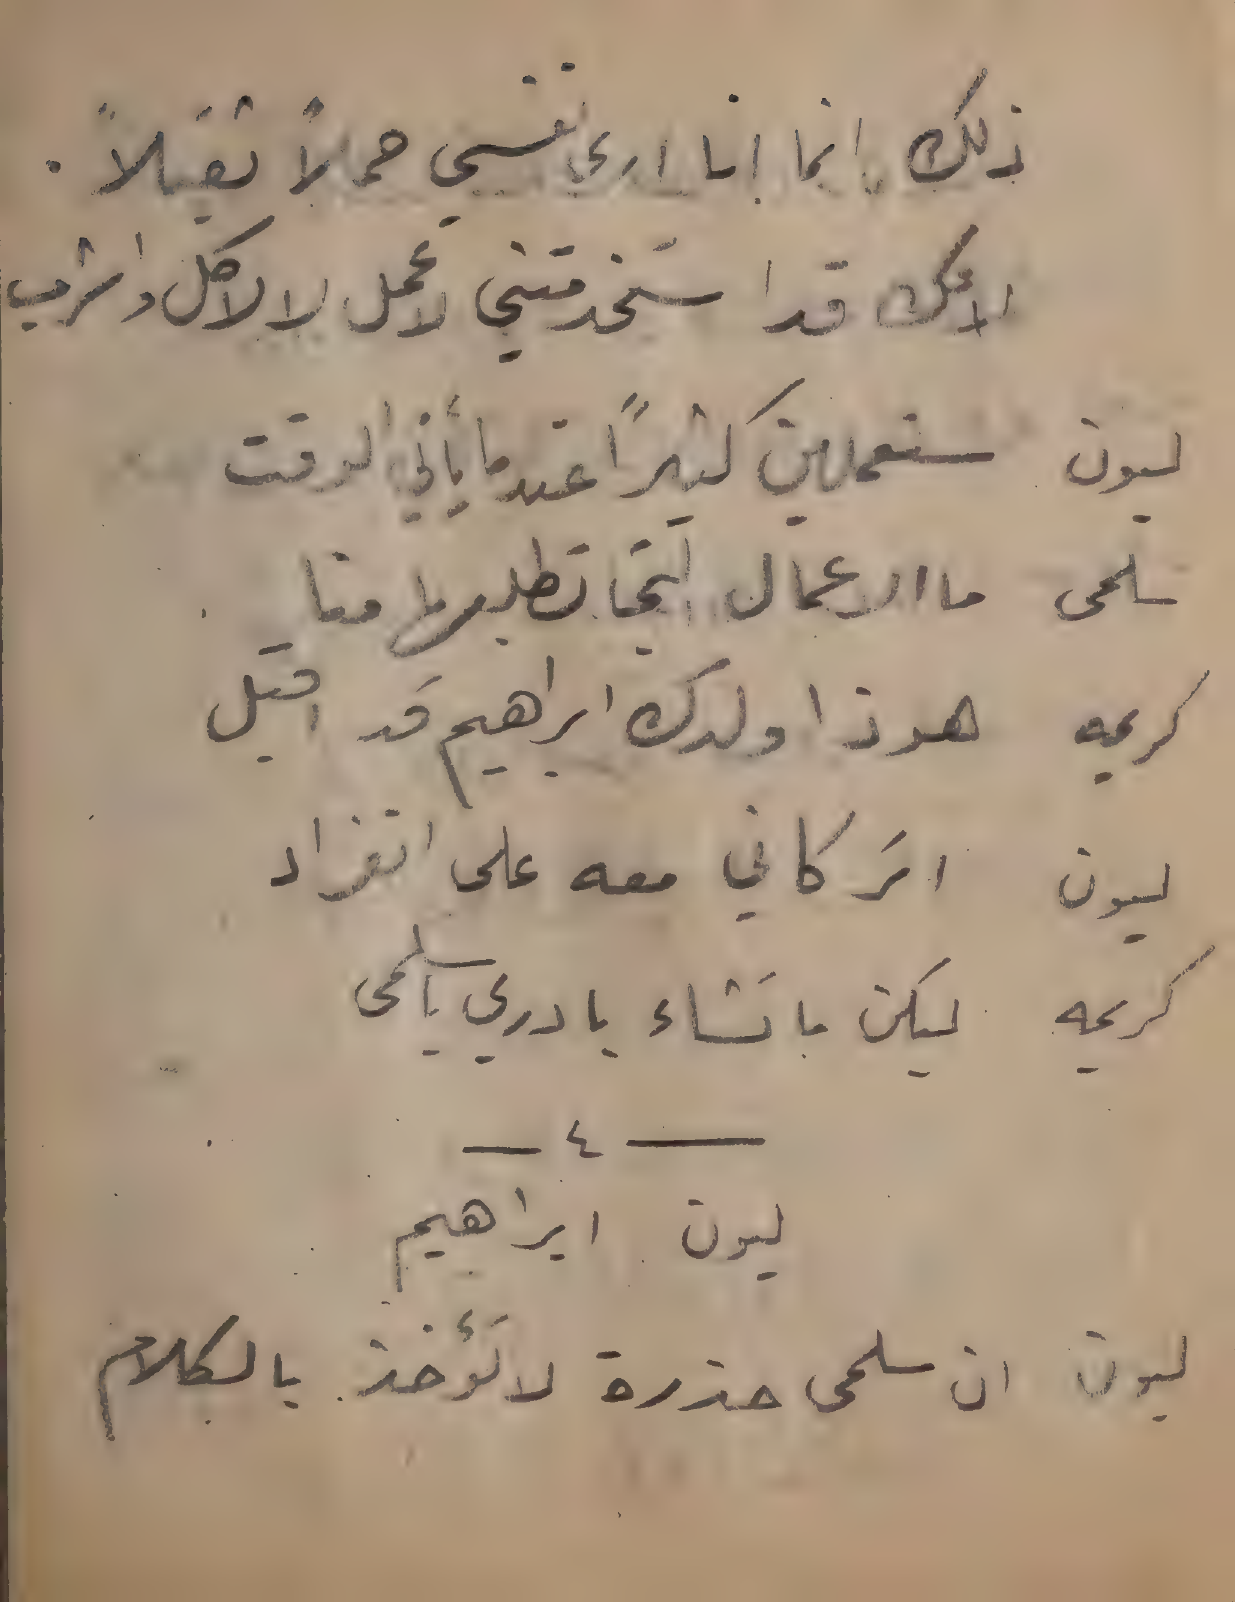 ذلك انما انا ارى نفسي حملاً ثقيلاً .
لانك قد استخدمتني لاعمل لا لاكل واشرب
ليون ستعملين كثيراً عندما يأتي الوقت
سلمى ما الاعمال التي تطلبها منا
كريمه هوذا ولدك ابراهيم قد اقبل
ليون اتركاني معه على انفراد
كريمه ليكن ما تشاء بادري يا سلمى
— ٤ —
ليون ابراهيم
ليون ان سلمى حذرة لا تؤخذ بالكلام